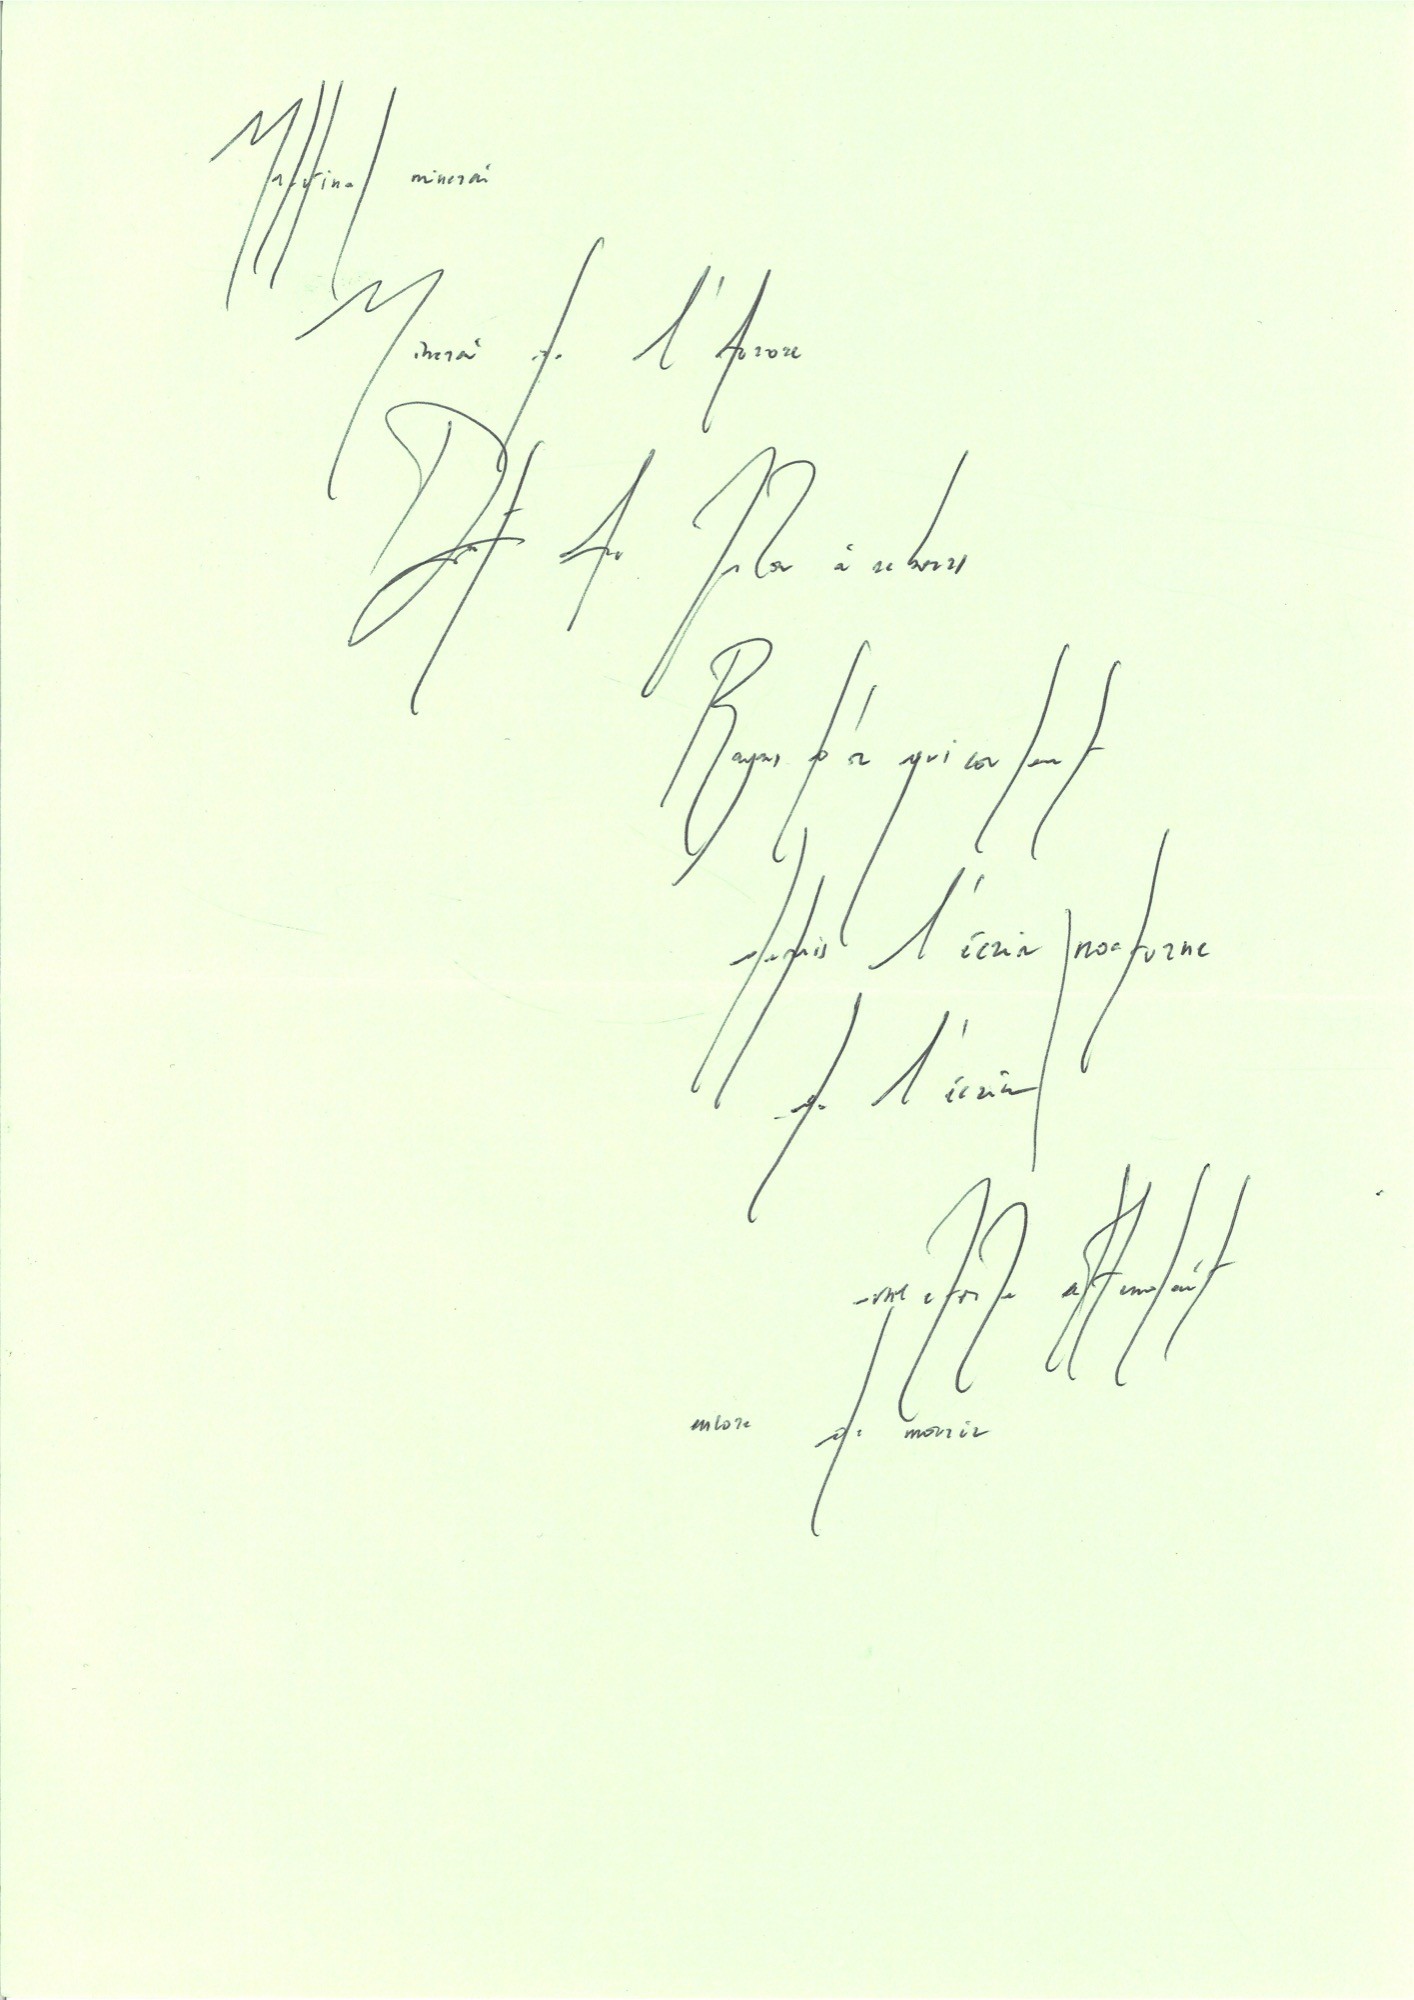 Matinal minerai
Minerai de l'Aurore
Départ du Jour à rebours
Rayons d'or qui coulent
depuis l'écrin nocturne
de l'écrin
une étoile attendait
encore de mourir